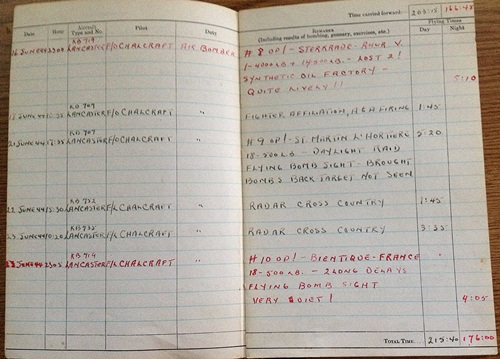 Time carried forward: 203:15 166:45
Date Hour Aircraft Type and No. Pilot Duty
Remarks
(Including results of bombing, gunnery, exercises, etc.)
Flying Times
Day Night
KB 719
16 JUNE 44 LANCASTER F/O CHALCRAFT AIR BOMBER
# 8 OP! - STERKRADE - RUHR. V.
LOST 2!
SYNTHETIC OIL FACTORY -
QUITE LIVELY!!
5:10
LANCASTER F/O CHALCRAFT "
FIGHTER AFFILIATION, A & A FIRING 1:45
21 JUNE 44 LANCASTER F/L CHALCRAFT "
# 9 OP! - ST. MARTIN L'HORTIERE 5:20
18-500 LB - DAYLIGHT RAID
FLYING BOMB SIGHT - BROUGHT
BOMBS BACK TARGET NOT SEEN
22 JUNE 44 LANCASTER F/L CHALCRAFT "
RADAR CROSS COUNTRY 1:45
23 JUNE 44 LANCASTER F/L CHALCRAFT "
RADAR CROSS COUNTRY 3:35
JUNE 44 LANCASTER F/L CHALCRAFT "
# 10 OP! - BIENTIQUE - FRANCE
18-500 LB. - 2 LONG DELAYS
FLYING BOMB SIGHT
VERY QUIET! 4:05
Total Time. 215:40 176:00